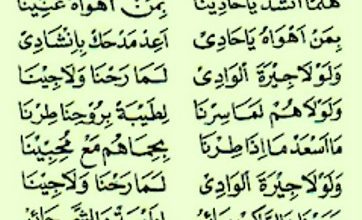 هَلُمَّا اَنْشُدْ يَاحَادِيْنَا بِمَنْ اَهْوَاهُ غَنِّيْنَا
بِمَنْ اَهْوَاهُ يَاحَادِىْ اَعِدْ مَدْحَكْ بِاِنْشَادِىْ
وَلَوْلَاجِيْرَةَ الْوَادِىْ لَمَا رُحْنَا وَلَاجِيْنَا
وَلَوْلَاهُمْ لَمَا سِرْنَا لِطَيْبَةْ بِرُوْحِنَا طِرْنَا
مَااَسْعَدْ مَااِذَا طِرْنَا بِحِمَاهُمْ مَعْ مُحِبِّيْنَا
وَلَوْلَاجِيْرَةَ الْوَادِىْ لَمَا رُحْنَا وَلَاجِيْنَا